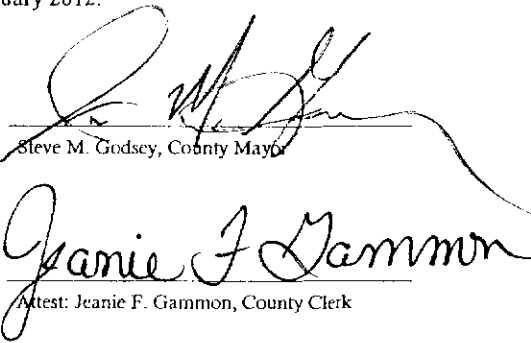 uary 2012.
Steve M. Godsey, County Mayor
Jeanie F Gammon
Attest: Jeanie F. Gammon, County Clerk